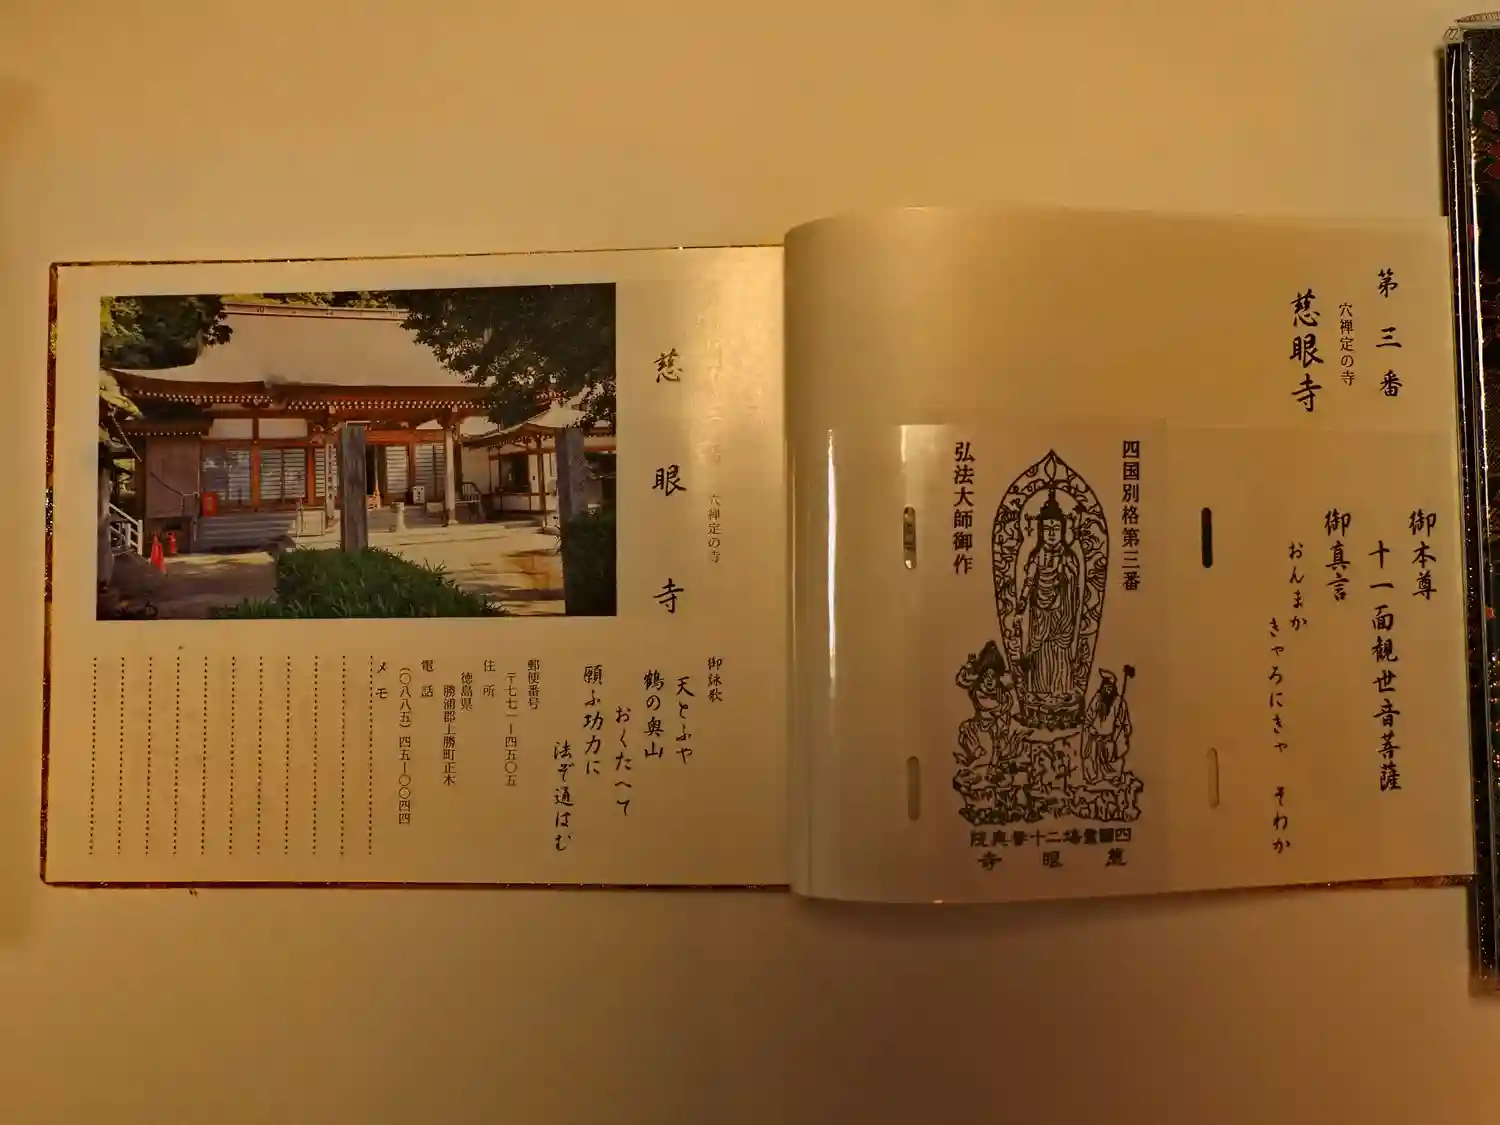 第三番
穴禅定の寺
慈眼寺
御本尊
十一面観世音菩薩
御真言
おんまか
きゃろにきゃ そわか
四国別格第三番
弘法大師御作
四國霊場二十番奥院
慈眼寺
穴禅定の寺
慈眼寺
御詠歌
天とふや
鶴の奥山
おくたへて
願ふ功力に
法ぞ通はむ
郵便番号
〒七七一ー四五〇五
住所
徳島県
勝浦郡上勝町正木
電話
(〇八八五)四五ー〇〇四四
メモ